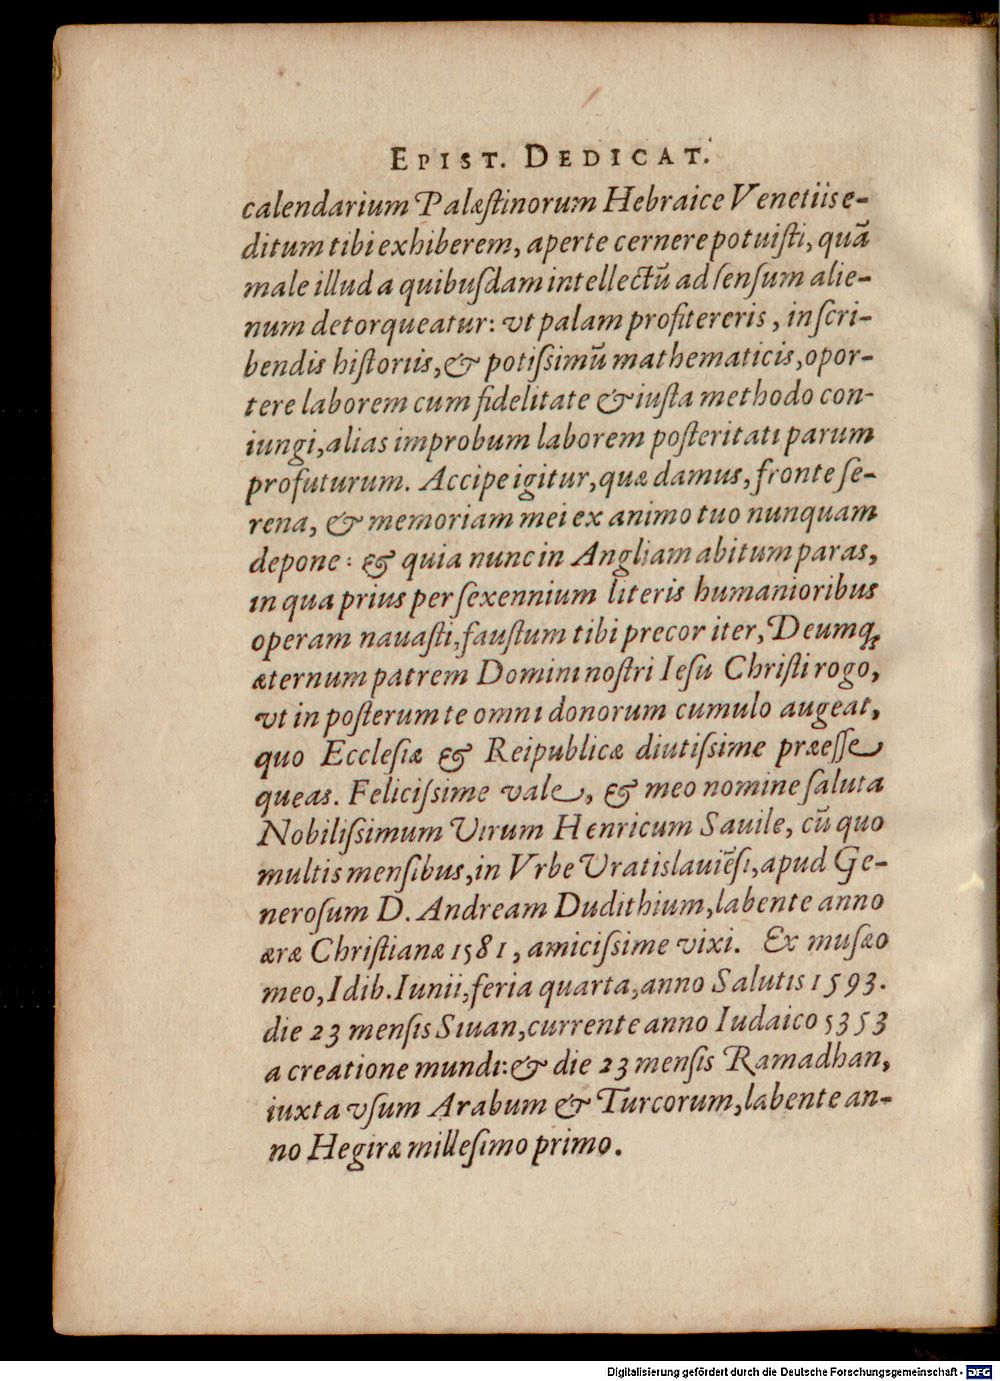 EPIST. DEDICAT.
calendarium Palæſtinorum Hebraice Venetiis e-
ditum tibi exhiberem, aperte cernere potuiſti, quā
male illud a quibuſdam intellectū ad ſenſum alie-
num detorqueatur: vt palam profitereris, in ſcri-
bendis hiſtoriis, & potiſsimū mathematicis, opor-
tere laborem cum fidelitate & iuſta methodo con-
iungi, alias improbum laborem poſteritati parum
profuturum. Accipe igitur, quæ damus, fronte ſe-
rena, & memoriam mei ex animo tuo nunquam
depone: & quia nunc in Angliam abitum paras,
in qua prius per ſexennium literis humanioribus
operam nauaſti, fauſtum tibi precor iter, Deumq;
æternum patrem Domini noſtri Ieſu Chriſti rogo,
vt in poſterum te omni donorum cumulo augeat,
quo Eccleſiæ & Reipublicæ diutiſsime præeſſe
queas. Feliciſsime vale, & meo nomine ſaluta
Nobiliſsimum Virum Henricum Sauile, cū quo
multis menſibus, in Vrbe Vratislauiēſi, apud Ge-
neroſum D. Andream Dudithium, labente anno
æræ Chriſtianæ 1581, amiciſsime vixi. Ex muſæo
meo, Idib. Iunii, feria quarta, anno Salutis 1593.
die 23 menſis Siuan, currente anno Iudaico 5353
a creatione mundi: & die 23 menſis Ramadhan,
iuxta vſum Arabum & Turcorum, labente an-
no Hegiræ milleſimo primo.
Digitalisierung gefördert durch die Deutsche Forschungsgemeinschaft - DFG